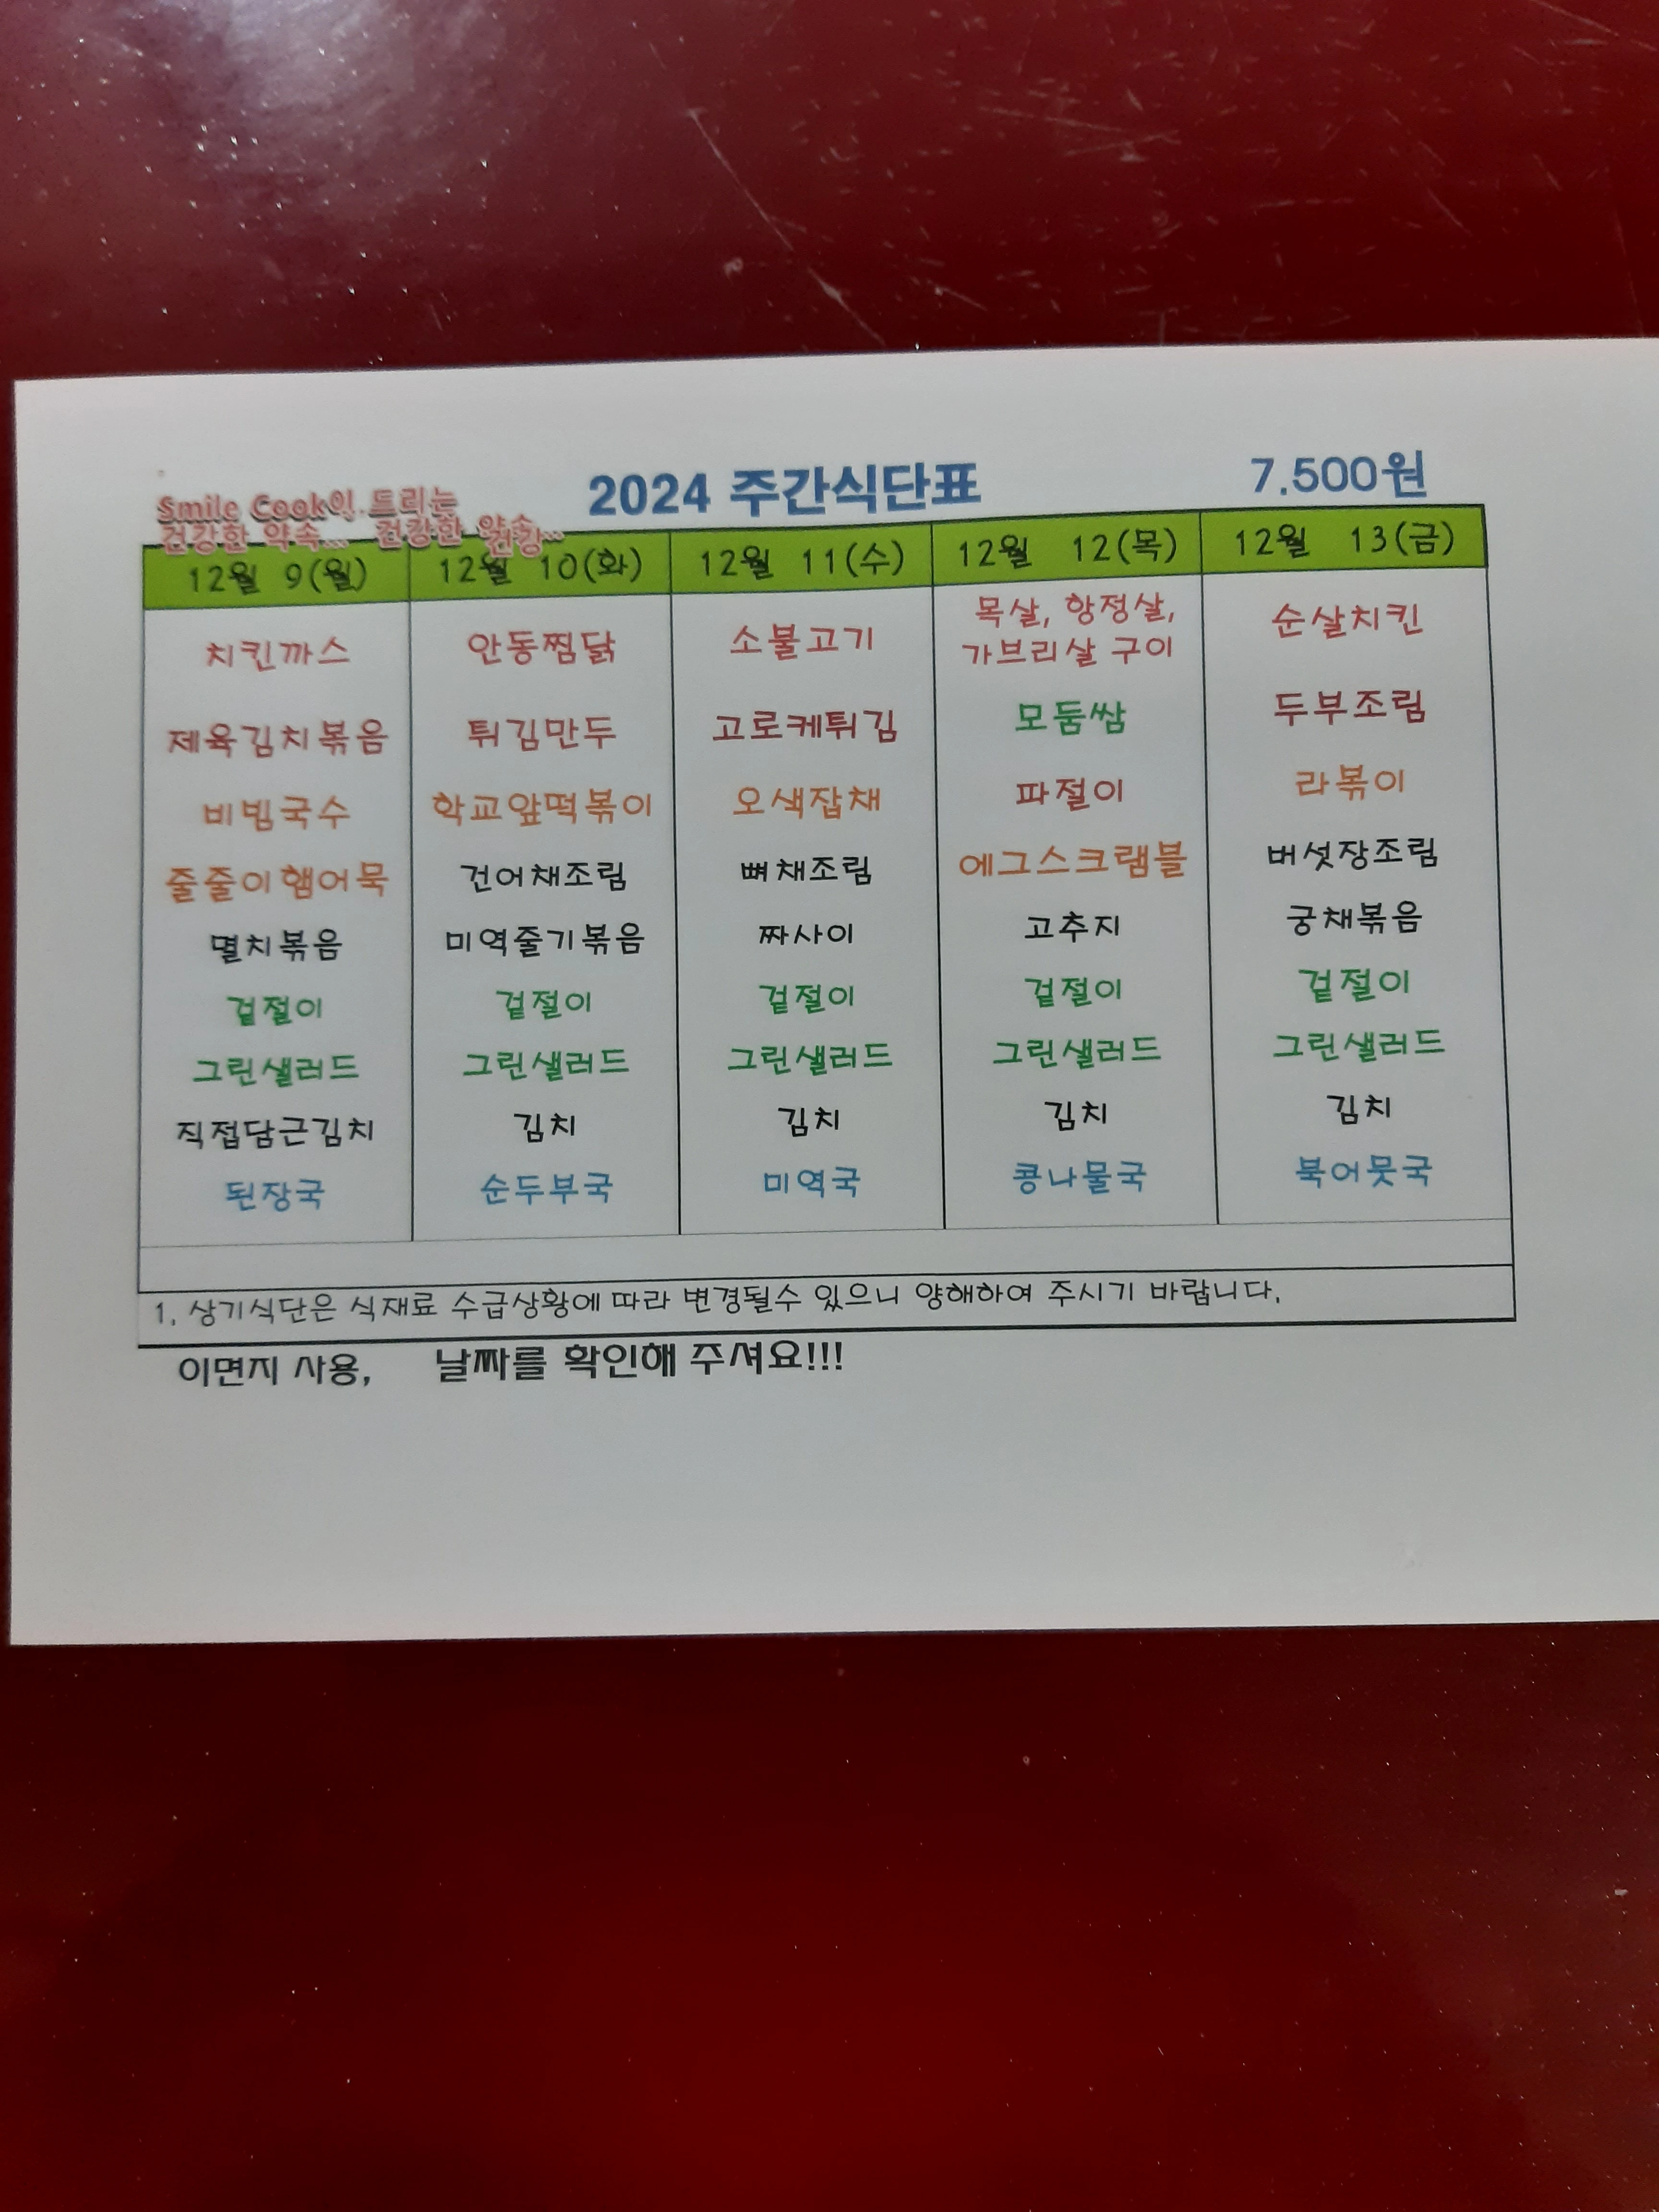 2024 주간식단표 7.500원
Smile Cook이 드리는
건강한 약속... 건강한
12월 9(월) 12월 10(화) 12월 11(수) 12월 12(목) 12월 13(금)
치킨까스 안동찜닭 소불고기 목살, 항정살, 순살치킨
가브리살 구이
제육김치볶음 튀김만두 고로케튀김 모둠쌈 두부조림
비빔국수 학교앞떡볶이 오색잡채 파절이 라볶이
줄줄이햄어묵 건어채조림 뼈채조림 에그스크램블 버섯장조림
멸치볶음 미역줄기볶음 짜사이 고추지 궁채볶음
겉절이 겉절이 겉절이 겉절이 겉절이
그린샐러드 그린샐러드 그린샐러드 그린샐러드 그린샐러드
직접담근김치 김치 김치 김치 김치
된장국 순두부국 미역국 콩나물국 북어뭇국
1. 상기식단은 식재료 수급상황에 따라 변경될수 있으니 양해하여 주시기 바랍니다.
이면지 사용, 날짜를 확인해 주셔요!!!